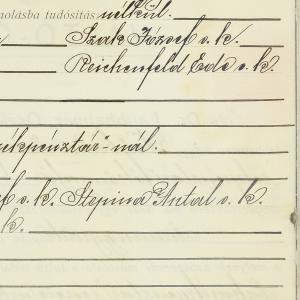 molásba tudósítás nélkül.
Szak József s. k.
Reichenfeld Ede s. k.
ékpénztár"-nál.
s. k. Stepina Antal s. k.
k.